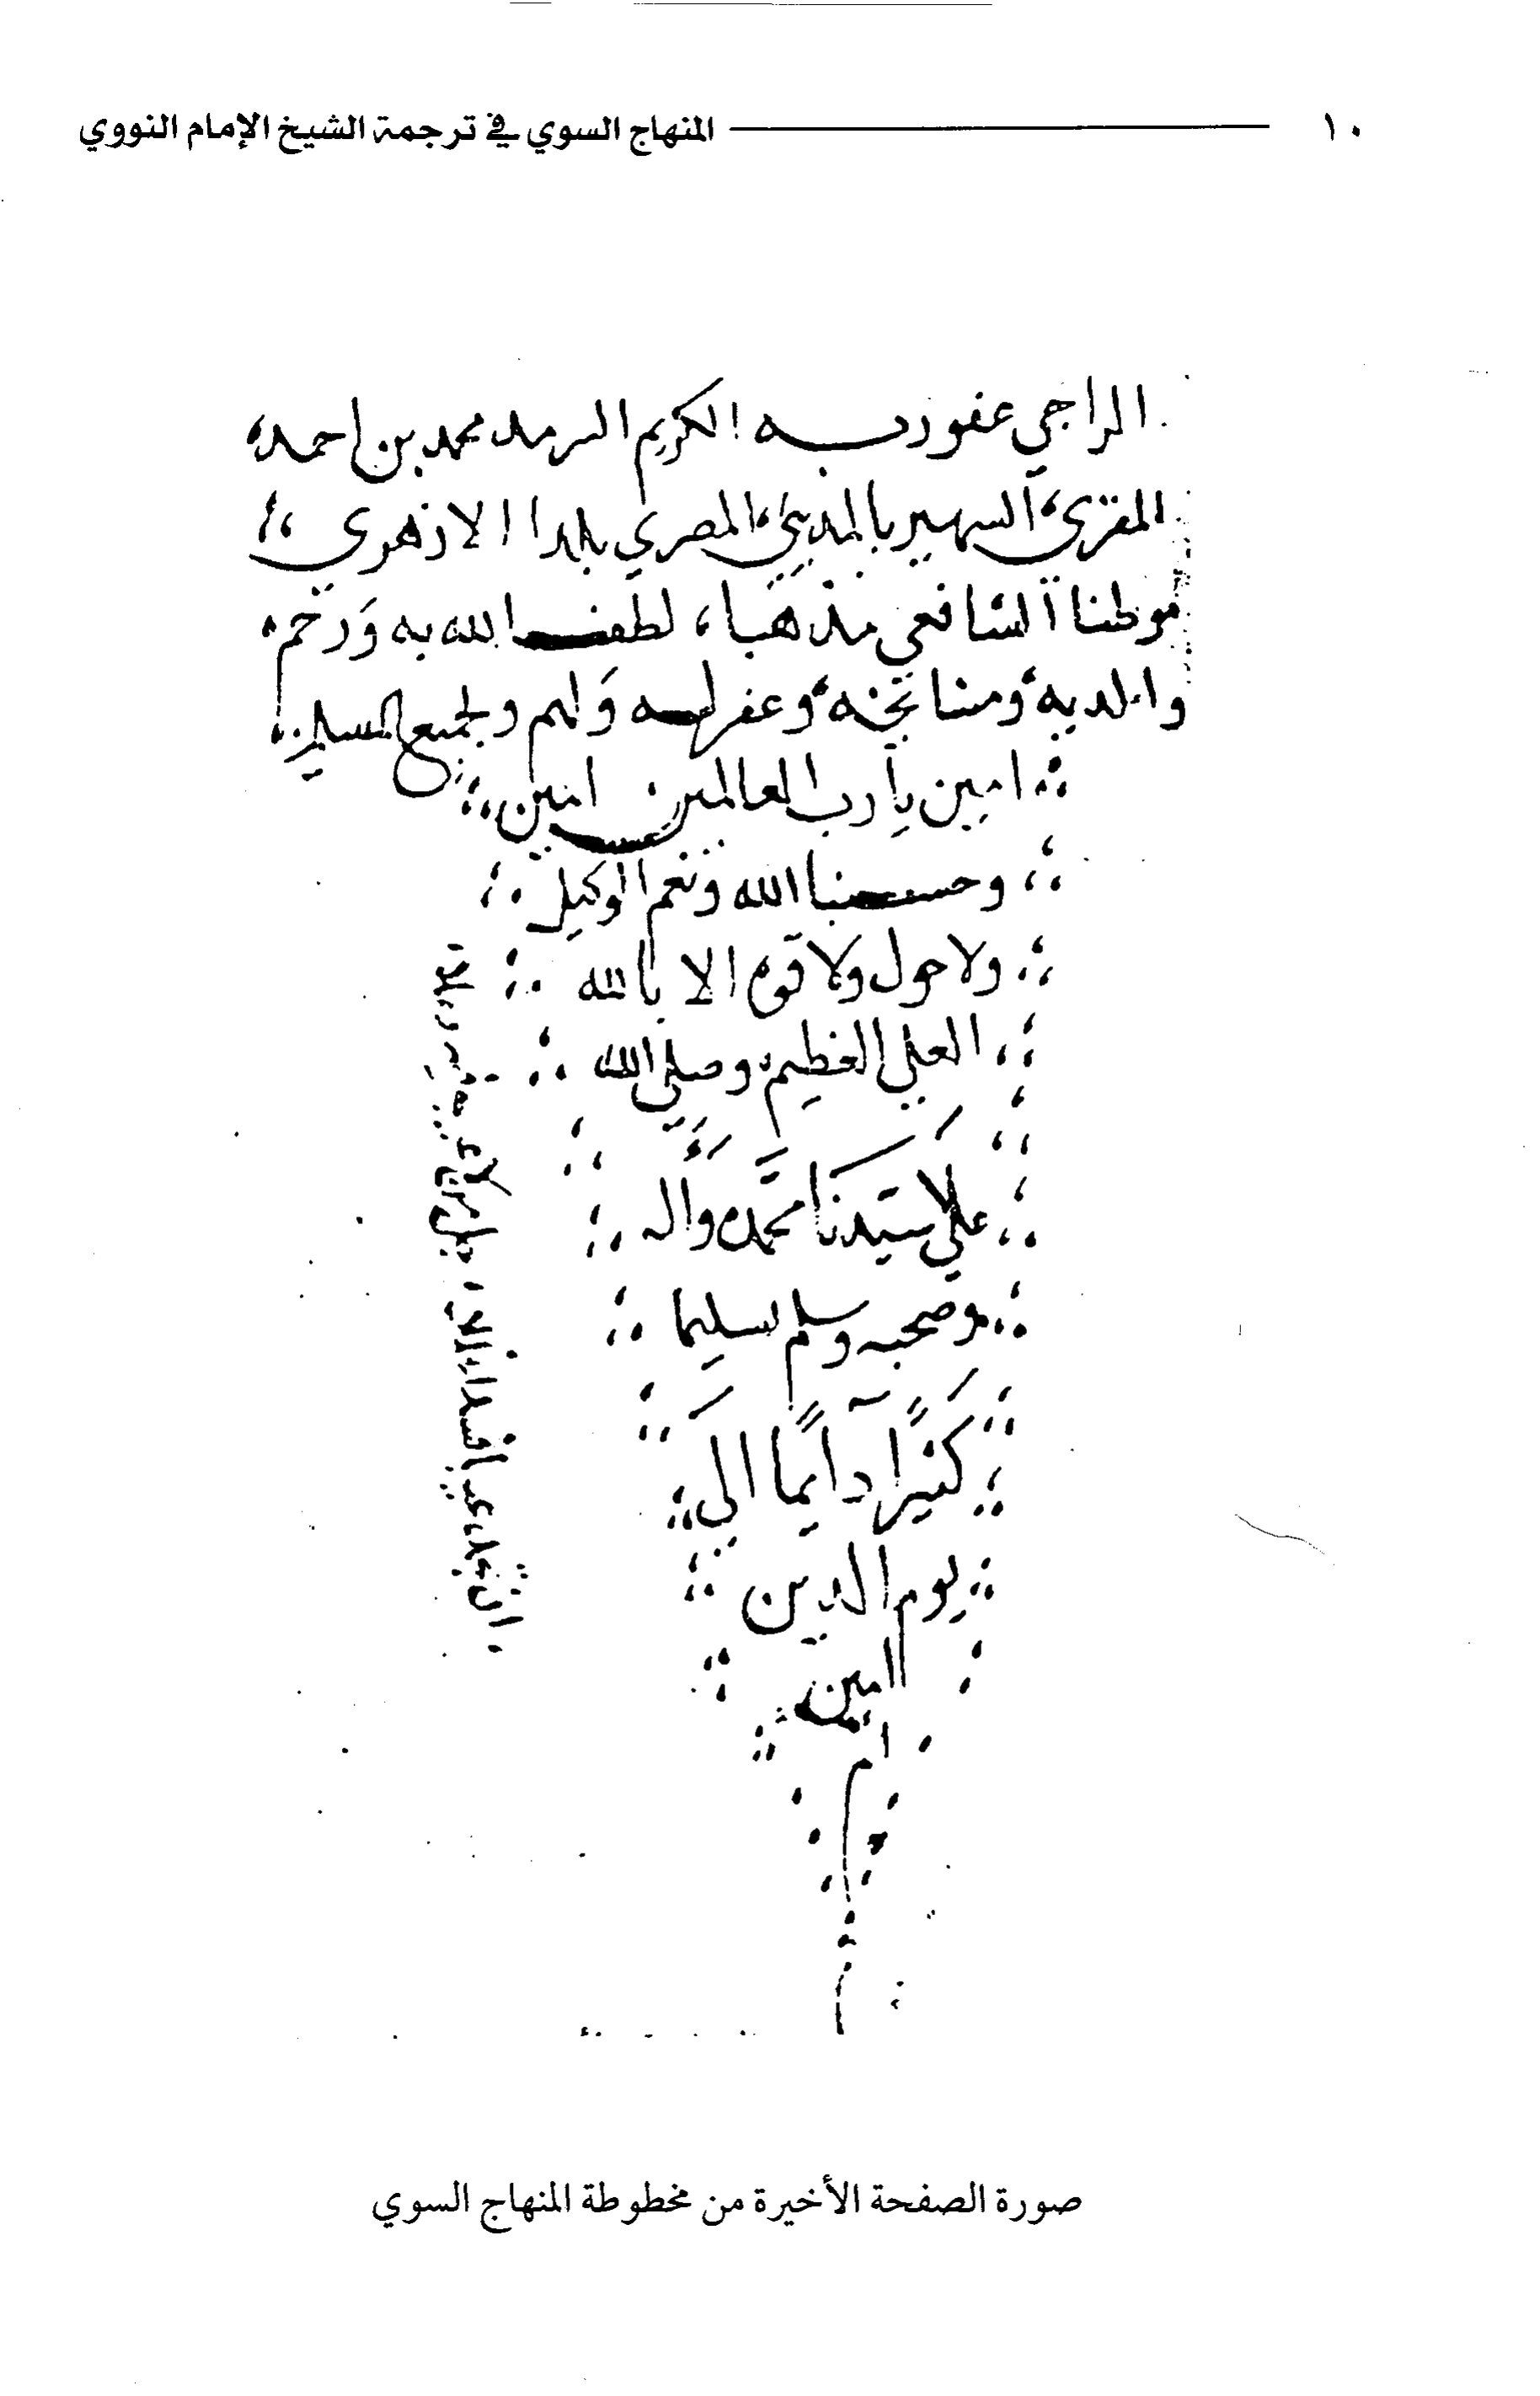 ١٠ المنهاج السوي في ترجمة الشيخ الإمام النووي
الراجي عفو ربه الكريم السرمد محمد بن احمد
المقرى الشهير بالمدينى المصري بلدا الازهرى
موطنا الشافعي مذهبا لطف الله به ورحم
والديه ومشايخه وغفر له ولهم ولجميع المسلمين
امين يا رب العالمين امين
وحسبنا الله ونعم الوكيل
ولا حول ولا قوة الا بالله
العلي العظيم وصلى الله
على سيدنا محمد واله
وصحبه وسلم تسليما
كثيرا دايما الى
يوم الدين
امين
ام
صورة الصفحة الأخيرة من مخطوطة المنهاج السوي